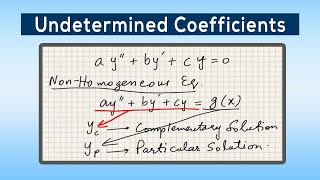 Undetermined Coefficients
a y'' + by' + cy = 0
Non-Homogeneous Eq.
ay'' + by' + cy = g(x)
yc → Complementary Solution
yp → Particular Solution.